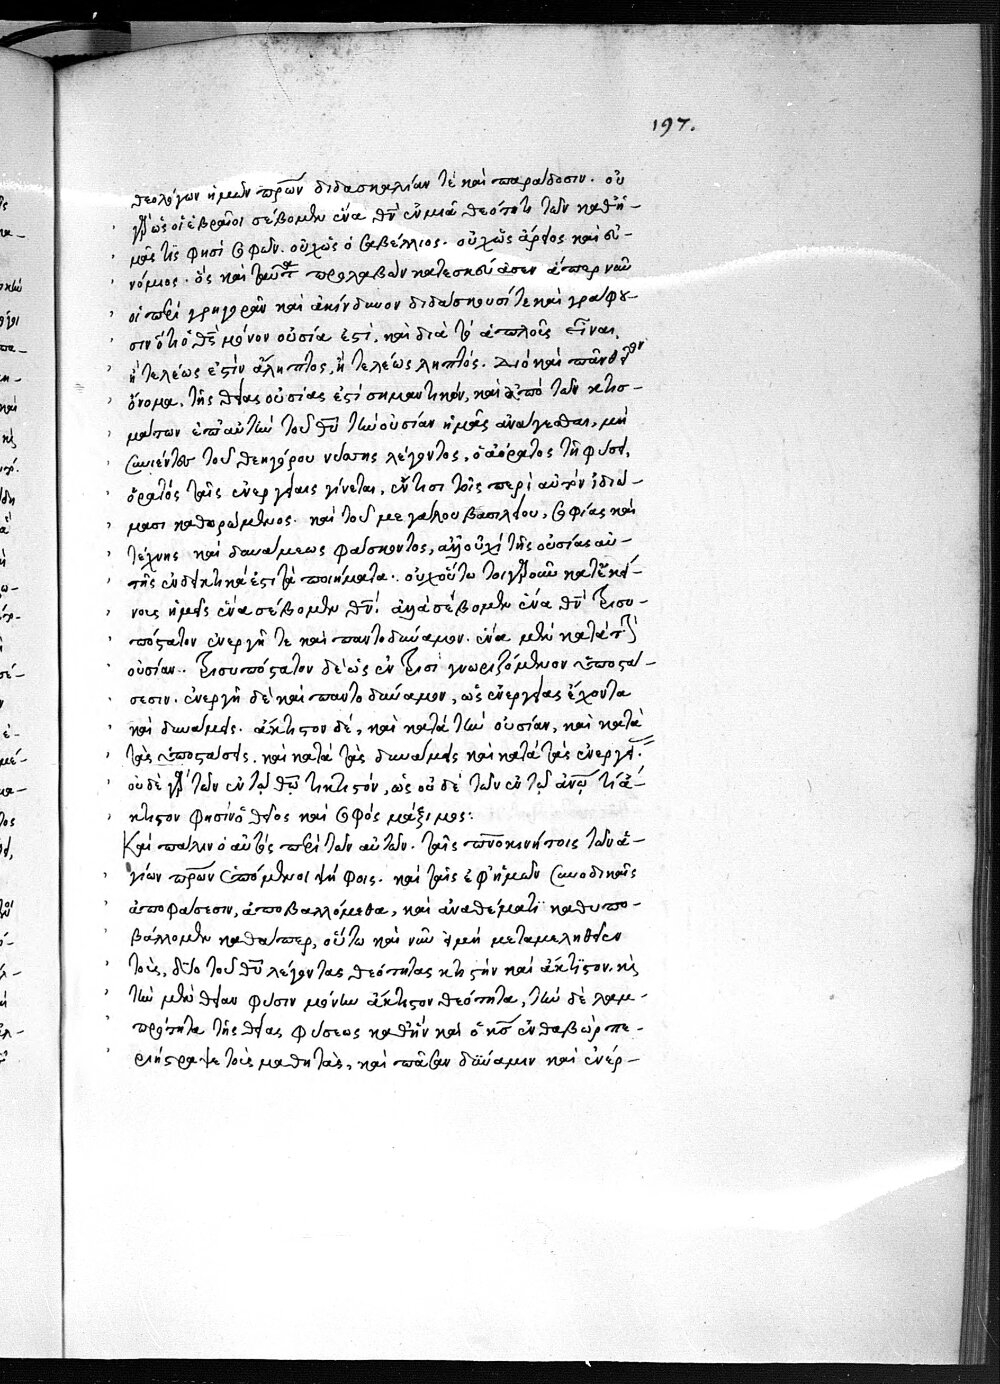 197.
θεολόγων ἡμῶν πρων διδασκαλίαν τὲ καὶ παράδοσιν. οὐ
γὰρ ὡς οἱ ἑβραῖοι σέβομεν ἕνα θν ἐν μιᾶ θεότητι τῶν καθ' ἡ-
μᾶς τίς φησὶ σοφῶν. οὐχ ὡς ὁ σαβέλλιος. οὐχ ὡς ἄρειος καὶ εὐ-
νόμιος. ὃς καὶ ταῦτα προλαβὼν κατεσκεύασεν ἅπερ νῦν
οἱ περὶ γρηγορᾶν καὶ ἀκίνδυνον διδάσκουσί τε καὶ γράφου-
σιν ὅτι ὁ θς μόνον οὐσία ἐστί, καὶ διὰ τὸ ἁπλοῦς εἶναι,
ἢ τελέως ἐστὶν ἄληπτος, ἢ τελέως ληπτός. Διὸ καὶ πᾶν θεῖον
ὄνομα, τῆς θείας οὐσίας ἐστὶ σημαντικόν, καὶ ἀπὸ τῶν κτισ-
μάτων ἐπ' αὐτὴν τοῦ θυ τὴν οὐσίαν ἡμᾶς ἀνάγεσθαι, μὴ
συνιέντων τοῦ θεηγόρου νύσσης λέγοντος, ὁ ἀόρατος τῆ φύσει,
ὁρατὸς ταῖς ἐνεργείαις γίνεται, ἔν τισι τοῖς περὶ αὐτὸν ἰδιώ-
μασι καθορώμενος. καὶ τοῦ μεγάλου βασιλείου, σοφίας καὶ
τέχνης καὶ δυνάμεως φάσκοντος, ἀλλ' οὐχὶ τῆς οὐσίας αὐ-
τῆς ἐνδεικτικά ἐστι τὰ ποιήματα. οὐχ οὕτω τοιγαροῦν κατ' ἐκεί-
νους ἡμεῖς ἕνα σέβομεν θν. ἀλλὰ σέβομεν ἕνα θν τρισυ-
πόστατον ἐνεργῆ τε καὶ παντοδύναμον. ἕνα μὲν κατὰ τὴν
οὐσίαν. τρισυπόστατον δὲ ὡς ἐν τρισὶ γνωριζόμενον ὑποστά-
σεσιν. ἐνεργῆ δὲ καὶ παντοδύναμον, ὡς ἐνεργείας ἔχοντα
καὶ δυνάμεις. ἄκτιστον δέ, καὶ κατὰ τὴν οὐσίαν, καὶ κατὰ
τὰς ὑποστάσεις, καὶ κατὰ τὰς δυνάμεις καὶ κατὰ τὰς ἐνεργείας.
οὐδὲ γὰρ τῶν ἐν τῷ θω τι κτιστόν, ὡς οὐδὲ τῶν ἐν τῷ ἀνω τὶ ἄ-
κτιστον φησὶν ὁ θεῖος καὶ σοφὸς μάξιμος:
Καὶ πάλιν ὁ αὐτὸς περὶ τῶν αὐτῶν. ταῖς πνοκινήτοις τῶν ἁ-
γίων πρων ἑπόμενοι ψήφοις. καὶ ταῖς ἐφ' ἡμῶν συνοδικαῖς
ἀποφάσεσιν, ἀποβαλλόμεθα, καὶ ἀναθέματι καθυπο-
βάλλομεν καθάπερ, οὕτω καὶ νῦν εἰ μὴ μεταμεληθεῖεν
τοὺς, δύο τοῦ θυ λέγοντας θεότητας κτιστὴν καὶ ἄκτιστον. καὶ
τὴν μὲν θείαν φύσιν μόνην ἄκτιστον θεότητα, τὴν δὲ λαμ-
πρότητα τῆς θείας φύσεως καθ' ἣν καὶ ὁ κς ἐν θαβὼρ πε-
ριήστραψε τοὺς μαθητάς, καὶ πᾶσαν δύναμιν καὶ ἐνέρ-